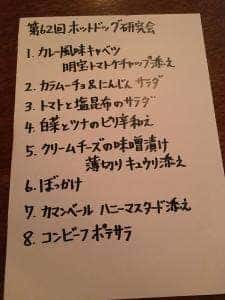 第62回 ホットドッグ研究会
1. カレー風味キャベツ
明宝トマトケチャップ添え
2. カラムーチョ&にんじん サラダ
3. トマトと塩昆布のサラダ
4. 白菜とツナのピリ辛和え
5. クリームチーズの味噌漬け
薄切りキュウリ添え
6. ぼっかけ
7. カマンベール ハニーマスタード添え
8. コンビーフ ポテサラ